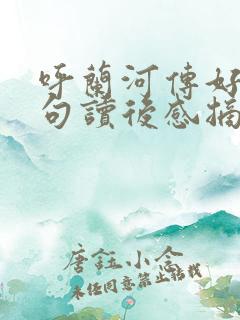 呼蘭河傳好
句讀後感摘
唐鈺小念
未任同意禁止轉載